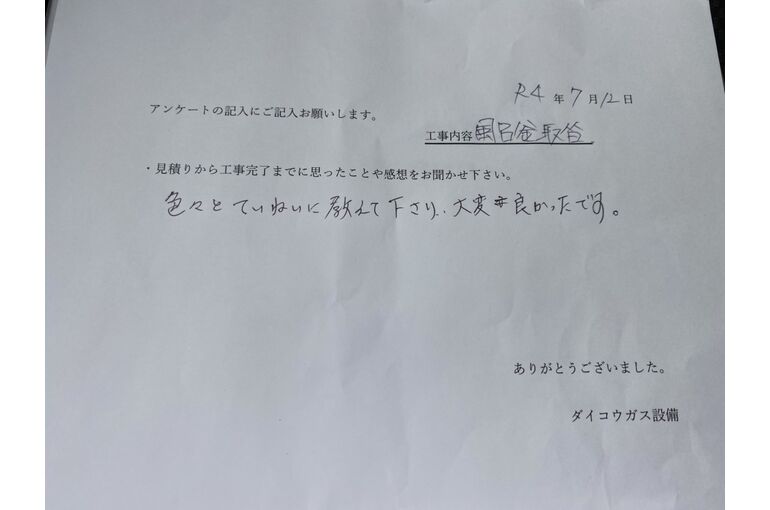 R4年7月12日
アンケートの記入にご記入お願いします。
工事内容 風呂釜取替
・見積りから工事完了までに思ったことや感想をお聞かせ下さい。
色々とていねいに教えて下さり、大変良かったです。
ありがとうございました。
ダイコウガス設備